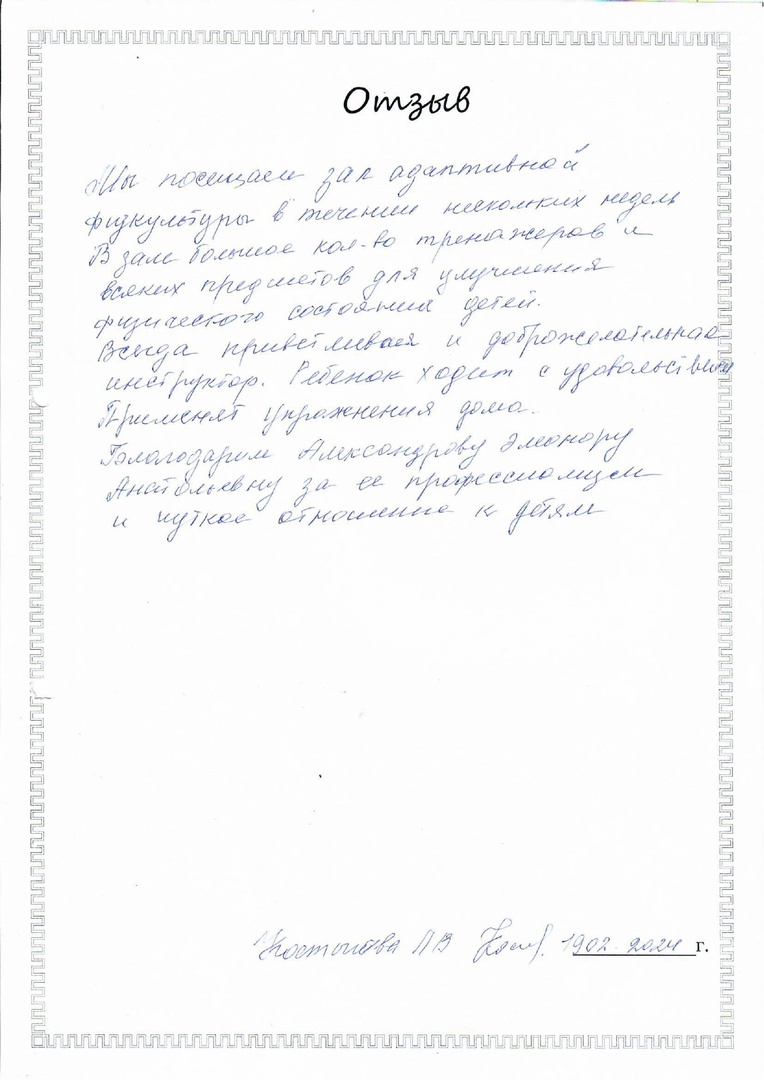 Отзыв
Мы посещаем зал адаптивной
физкультуры в течении нескольких недель
В зале большое кол-во тренажеров и
всяких предметов для улучшения
физического состояния детей.
Всегда приветливая и доброжелательная
инструктор. Ребенок ходит с удовольствием
Применят упражнения дома.
Благодарим Александрову Элеонору
Анатольевну за ее профессионализм
и чуткое отношение к детям
ЛВ 1902.2024 г.